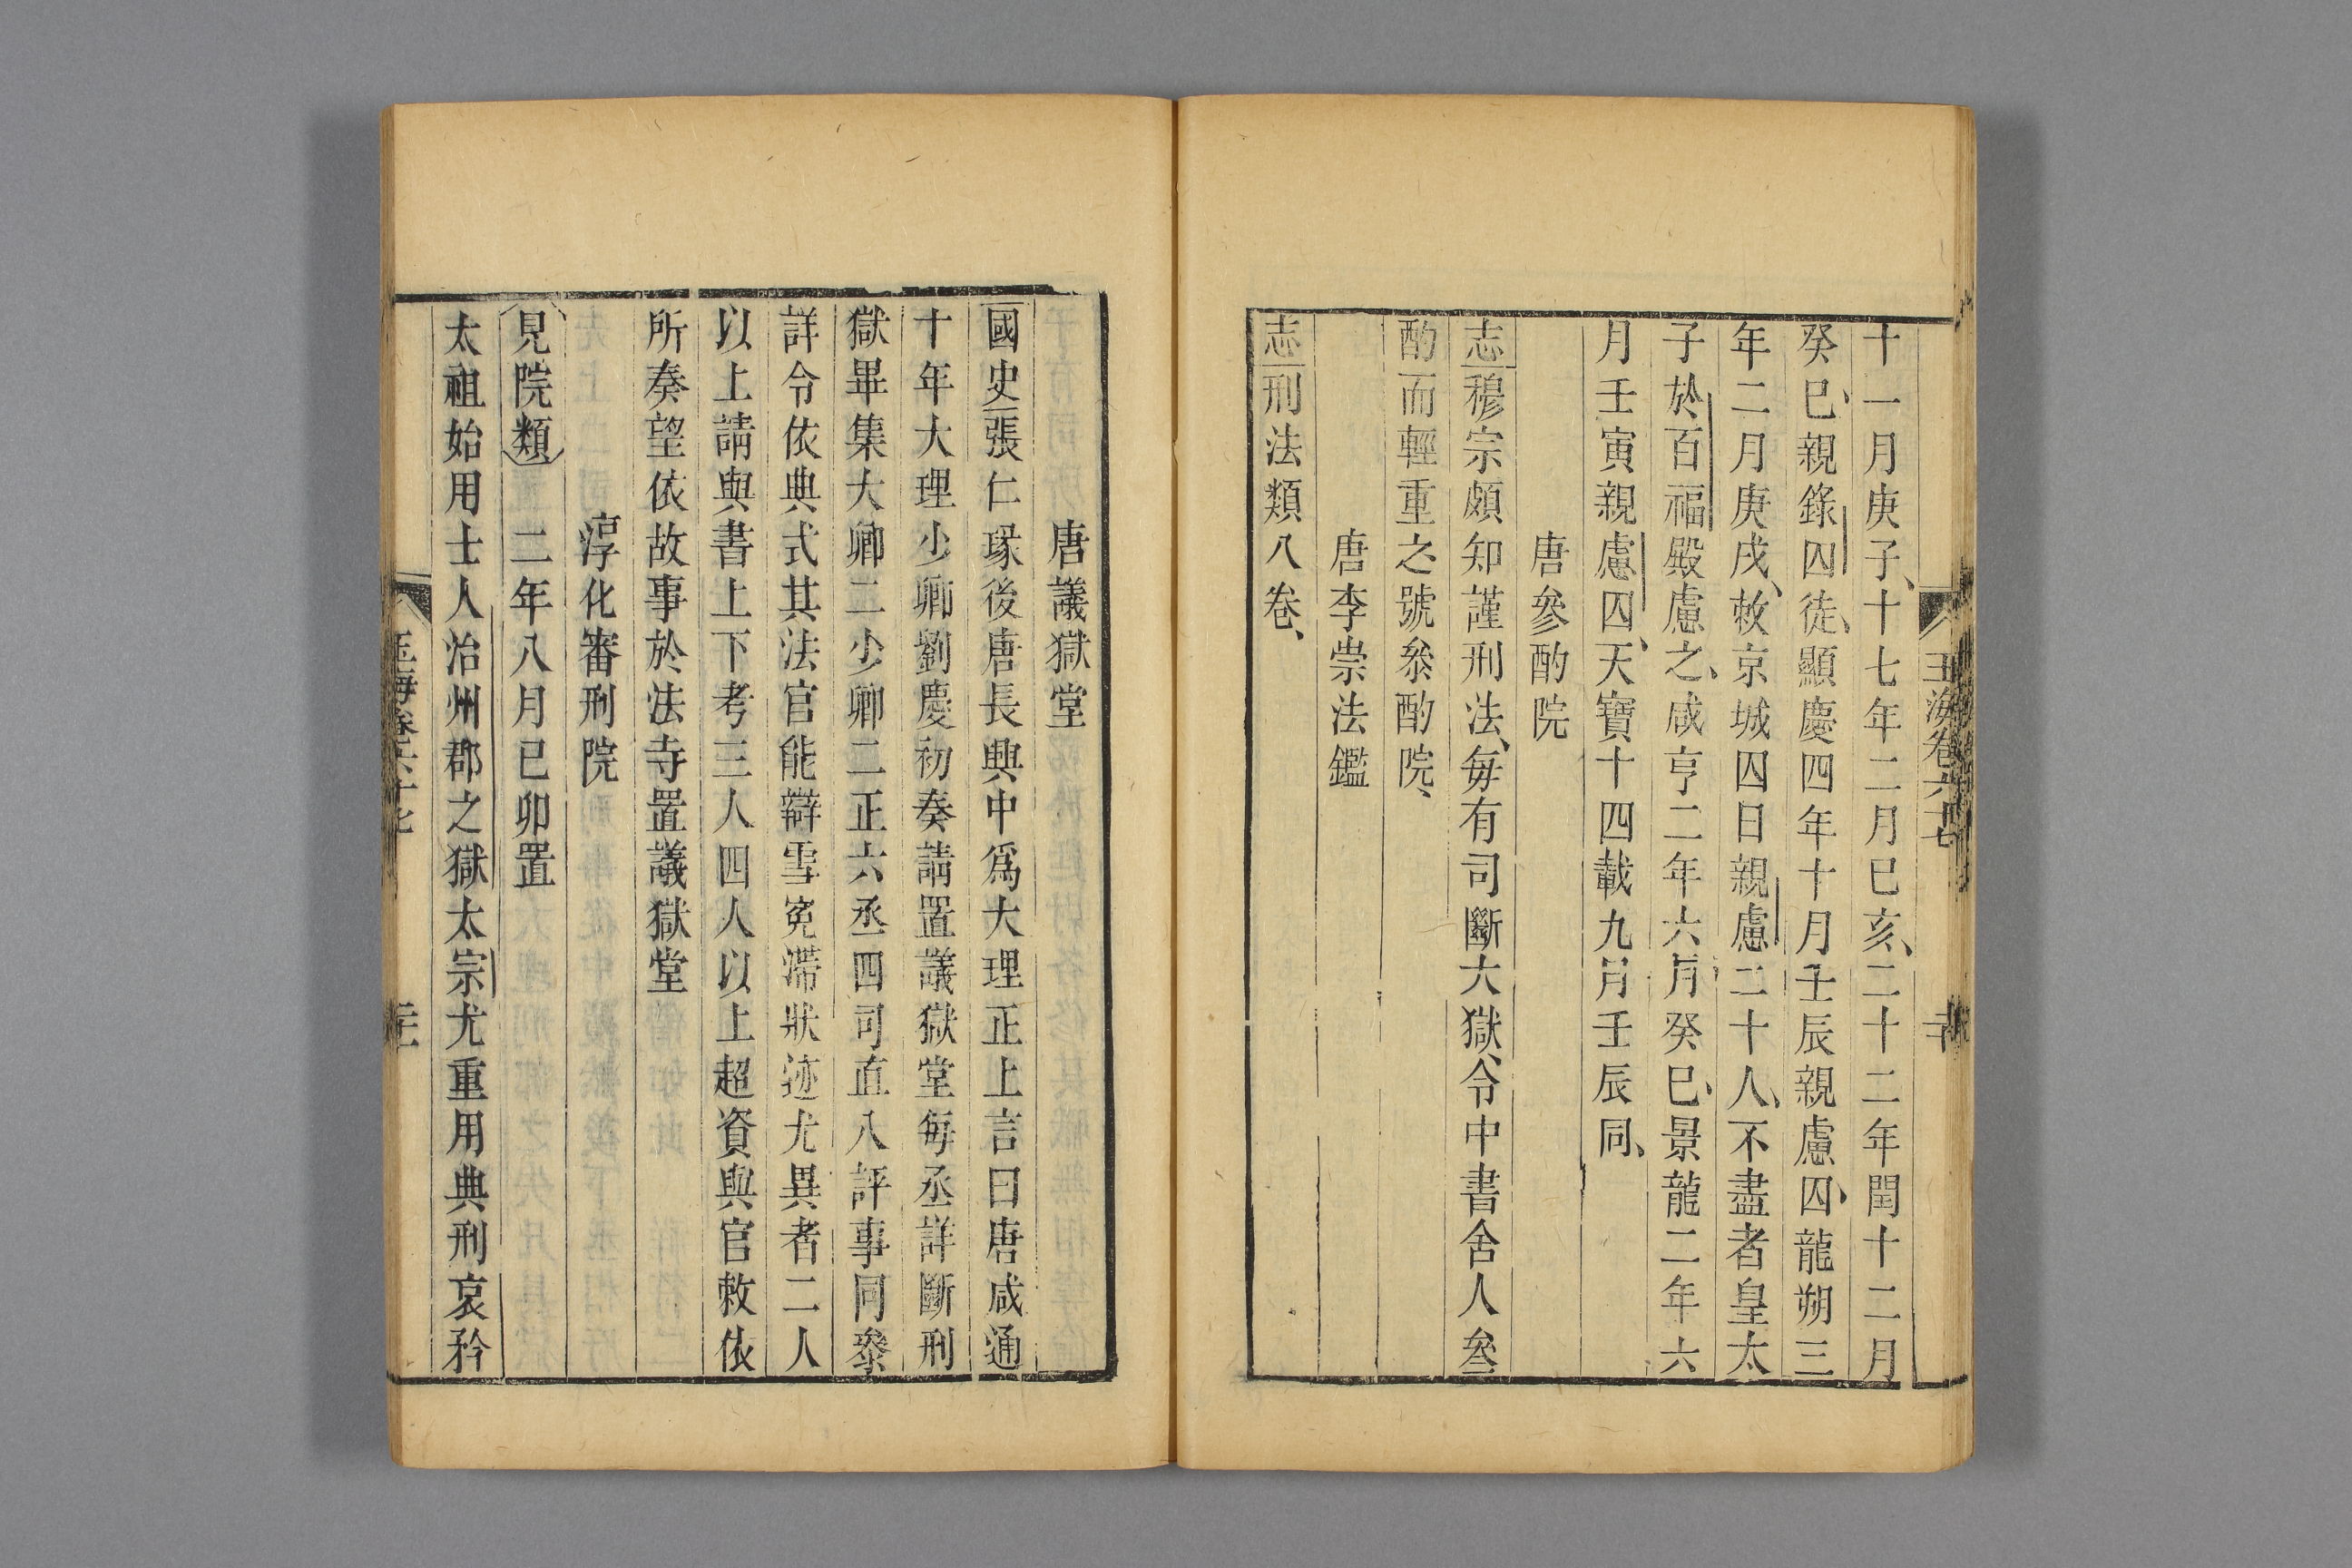 玉海卷六十七
二十
十一月庚子十七年二月巳亥二十二年閏十二月
癸巳親錄囚徒顯慶四年十月壬辰親慮囚龍朔三
年二月庚戌敕京城囚日親慮二十人不盡者皇太
子於百福殿慮之咸亨二年六月癸巳景龍二年六
月壬寅親慮囚天寶十四載九月壬辰同
唐參酌院
志穆宗頗知謹刑法毎有司斷大獄令中書舍人叅
酌而輕重之號叅酌院
唐李崇法鑑
志刑法類八卷
唐議獄堂
國史張仁瑑後唐長興中爲大理正上言曰唐咸通
十年大理少卿劉慶初奏請置議獄堂每丞詳斷刑
獄畢集大卿二少卿二正六丞四司直八評事同叅
詳令依典式其法官能辯雪寃滯狀迹尤異者二人
以上請與書上下考三人四人以上超資與官敕依
所奏望依故事於法寺置議獄堂
淳化審刑院
見院類 二年八月巳卯置
太祖始用士人治州郡之獄太宗尤重用典刑哀矜
玉海卷六十七